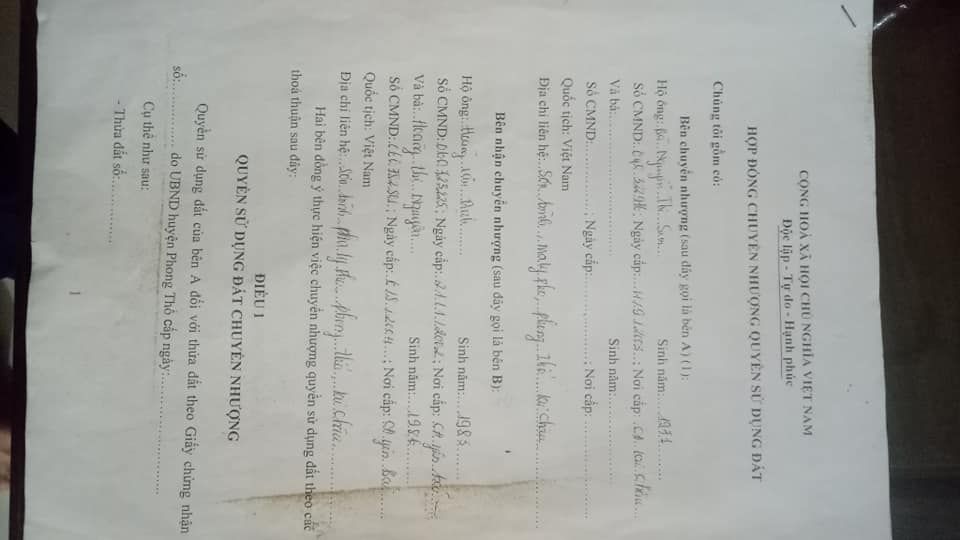 CỘNG HOÀ XÃ HỘI CHỦ NGHĨA VIỆT NAM
Độc lập - Tự do - Hạnh phúc
HỢP ĐỒNG CHUYỂN NHƯỢNG QUYỀN SỬ DỤNG ĐẤT
Chúng tôi gồm có:
Bên chuyển nhượng (sau đây gọi là bên A) (1):
Hộ ông: Bà Nguyễn Thị Sinh năm: 1977
Số CMND: Ngày cấp: Nơi cấp: CA Lai Châu
Và bà: Sinh năm:
Số CMND: ; Ngày cấp: ; Nơi cấp:
Quốc tịch: Việt Nam
Địa chỉ liên hệ: Sơn bình, Ma ly pho, phong Thổ, Lai Châu
Bên nhận chuyển nhượng (sau đây gọi là bên B):
Hộ ông: Hoàng Văn Sinh năm: 1983
Số CMND: 060723225; Ngày cấp: ; Nơi cấp: CA yên bái
Và bà: Hoàng Thị Nguyên Sinh năm: 1986
Số CMND: ; Ngày cấp: ; Nơi cấp: CA yên Bái
Quốc tịch: Việt Nam
Địa chỉ liên hệ: Sơn bình phong thổ, Lai Châu
Hai bên đồng ý thực hiện việc chuyển nhượng quyền sử dụng đất theo các
thoả thuận sau đây:
ĐIỀU 1
QUYỀN SỬ DỤNG ĐẤT CHUYỂN NHƯỢNG
Quyền sử dụng đất của bên A đối với thửa đất theo Giấy chứng nhận
số: do UBND huyện Phong Thổ cấp ngày:
Cụ thể như sau:
- Thửa đất số:
1